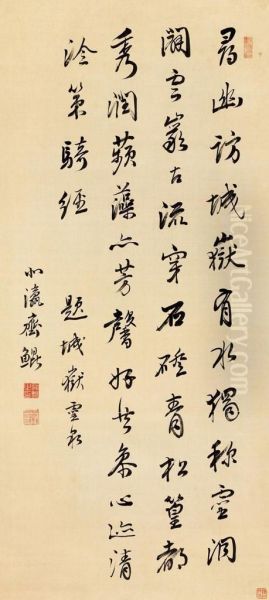 尋幽訪城嶽有水獨稱靈洞
雲巖古流穿石磴青松篁都
秀潤蘋藻亦芳馨好心迹清
泠策騎經
題城嶽靈泉
小瀛齊鯤
NiceArtGallery.com